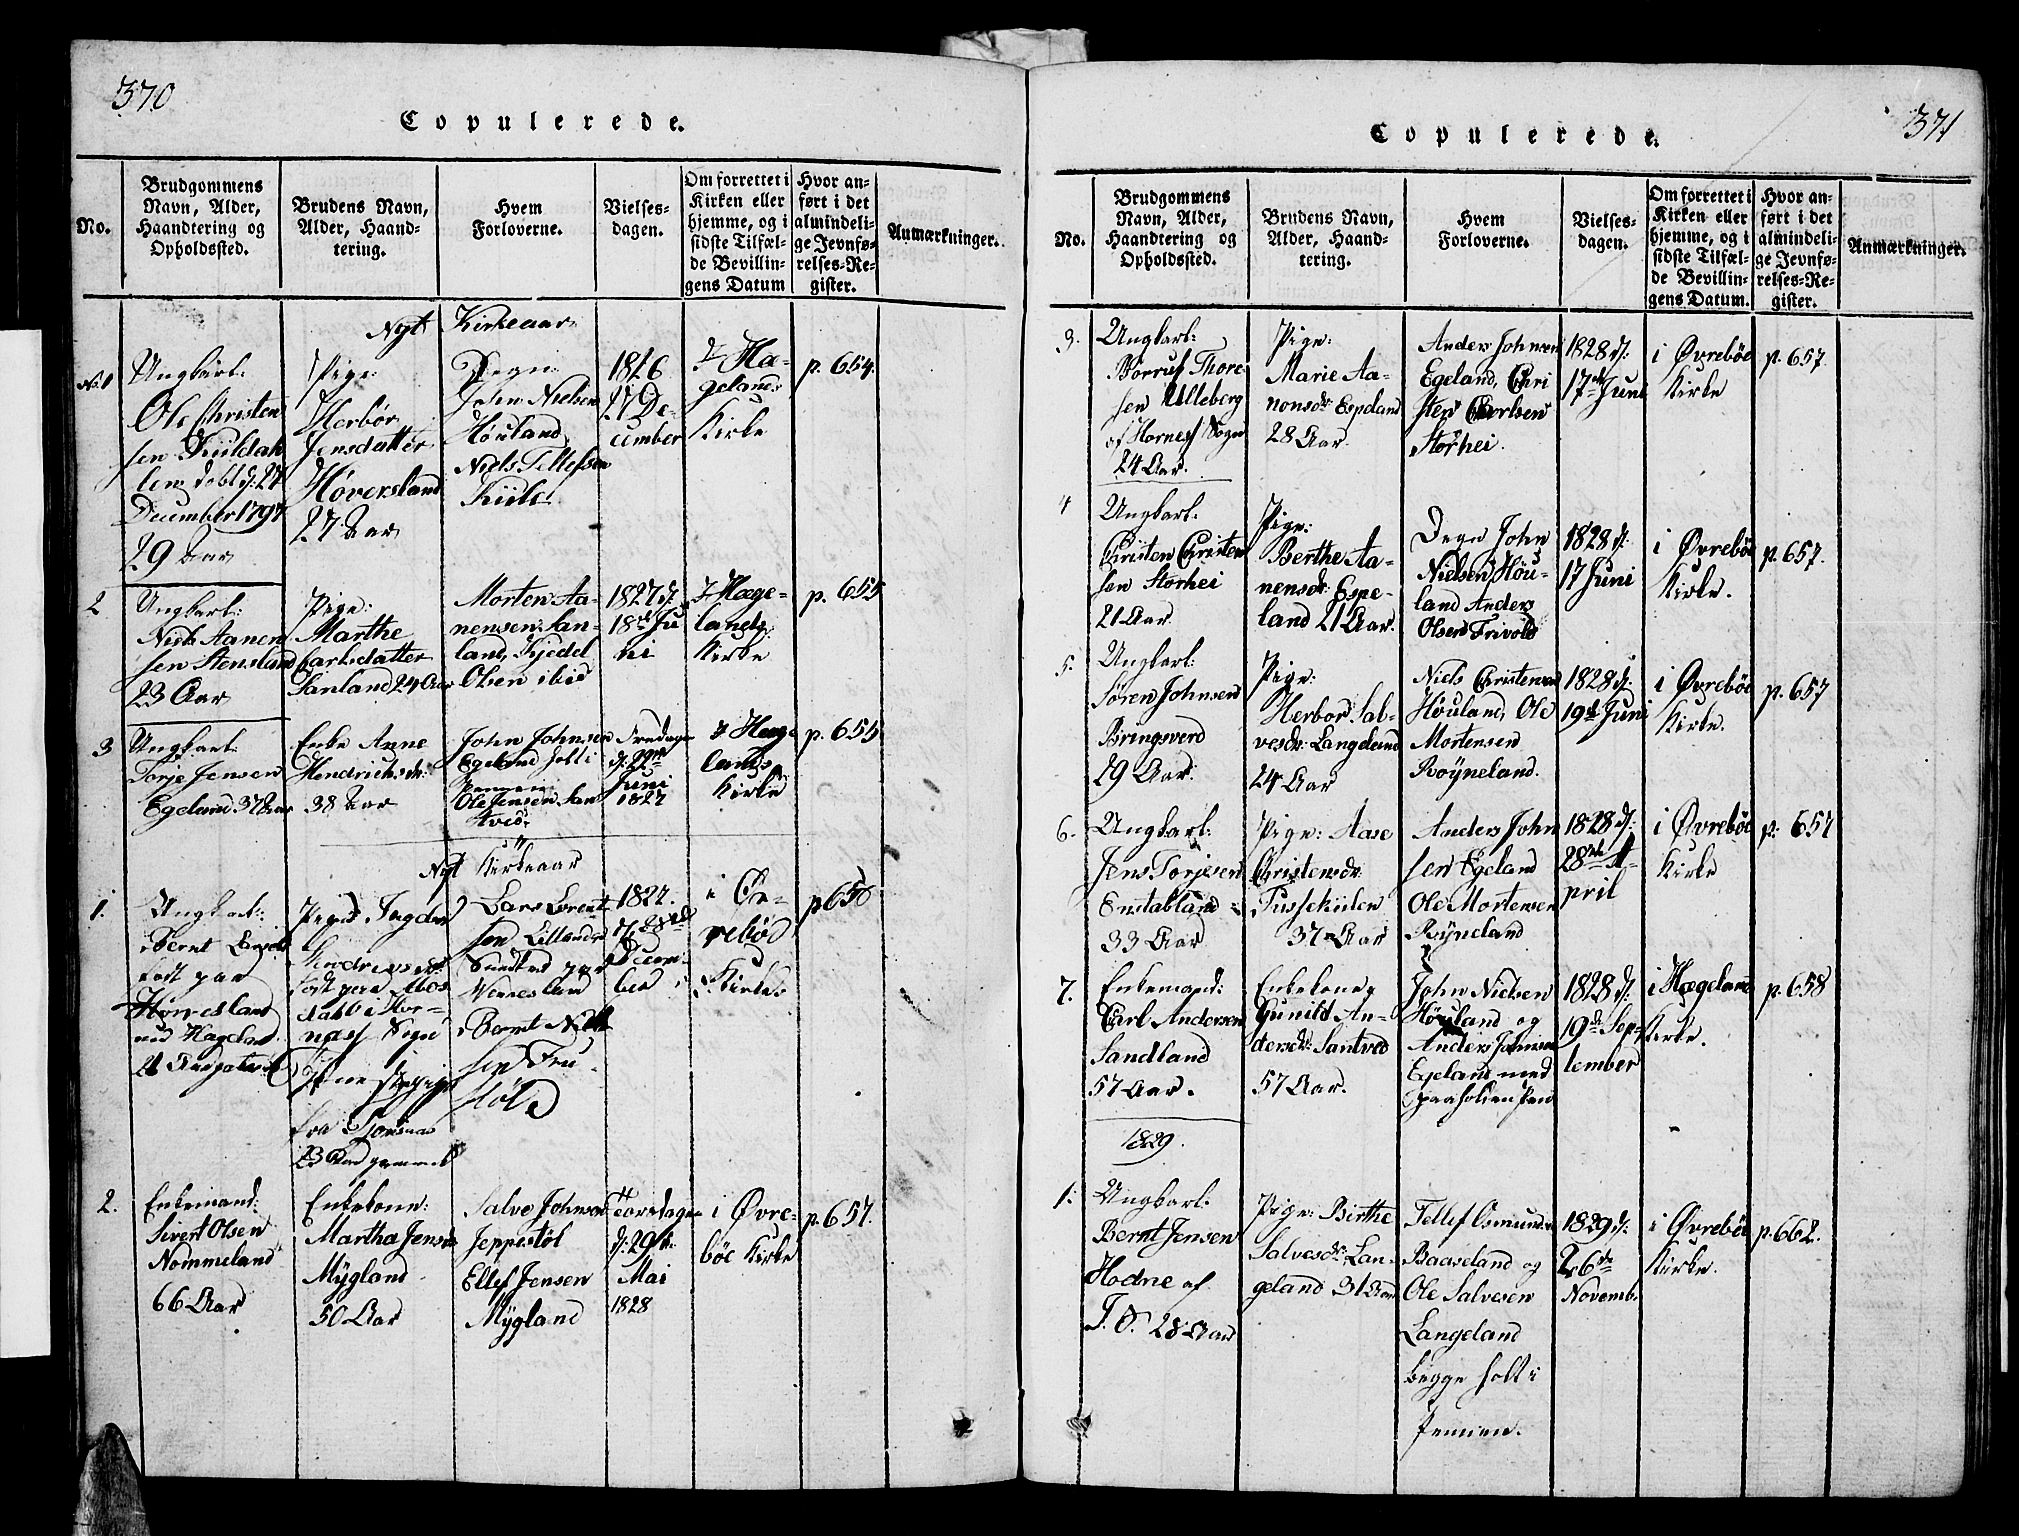 370
Copulerede.
No.
Brudgommens
Navn, Alder,
Haandtering og
Opholdssted.
Brudens Navn,
Alder, Haand-
tering.
Hvem
Forloverne.
Vielses-
dagen.
Om forrettet i
Kirken eller
hjemme, og i
sidste Tilfæl-
de Bevillin-
gens Datum
Hvor an-
ført i det
almindeli-
ge Jevnfø-
relses-Re-
gister.
Anmærkninger.
Nyt Kirkeaar
No. 1
Ungkarl:
Ole Christen
sen
December 1797
29 Aar
Pige:
Herbor
Jensdatter
Høversland
27 Aar
Degn
John Nielsen
Høuland
Niels Tellefsen
Kiile
1826
27 De-
cember
i Hæ-
gelands
Kirke
p. 654
2
Ungkarl:
Niels Aanen
sen Stensland
23 Aar
Pige:
Marthe
Carlsdatter
Sanland 24 Aar
Morten Aa-
nensen San-
land, Kjedel
Olsen ibid
1827 d.
18de Ju
ni
i Hæge-
lands
Kirke
p. 655
3
Ungkarl:
Torje Jensen
Egeland 37 Aar
Enke Anne
Hendrichsdr:
38 Aar
John Johnsen
Egeland
Ole Jensen San
tved
Fredagen
d. 22de
Juni
1827
i Hæge
lands
Kirke
p. 655
Nyt Kirkeaar
1.
Ungkarl:
Bernt
født paa
Pige
Lars Lorent
sen
Bernt
1827.
d. 28de
Decem-
ber
i Øv-
rebøe
Kirke
p 656
2.
Enkemand:
Sivert Olsen
Nommeland
66 Aar
Enkekone:
Martha Jensdr
Mÿgland
50 Aar
Salve Johnsen
Jeppestøl
Ellef Jensen
Mÿgland
Torsdagen
d. 29de
Mai
1828
i Øvre-
bøe Kirke
p. 657.
371
Copulerede.
No.
Brudgommens
Navn, Alder,
Haandtering og
Opholdssted.
Brudens Navn,
Alder, Haand-
tering.
Hvem
Forloverne.
Vielses-
dagen.
Om forrettet i
Kirken eller
hjemme, og i
sidste Tilfæl-
de Bevillin-
gens Datum.
Hvor an-
ført i det
almindeli-
ge Jevnfø-
relses-Re-
gister.
Anmærkninger.
3.
Ungkarl:
Thore
sen Ulleberg
af Hornes Sogn
24 Aar.
Pige:
Marie Aa-
nonsdr Espeland
28 Aar.
Anders Johnsen
Egeland, Chri
sten
Storhei.
1828 d.
17de Juni
i Øvrebøe
Kirke
p. 657.
4
Ungkarl:
Christen Christen
sen Storhei
21 Aar.
Pige:
Berthe Aa-
nensdr Espe-
land 21 Aar.
Degn John
Nielsen Høu-
land Anders
Olsen Frivold
1828 d.
17 Juni
i Øvrebøe
Kirke.
p. 657.
5.
Ungkarl:
Søren Johnsen
Bringsverd
29 Aar.
Pige:
Herbor Sal-
vesdr: Langeland
24 Aar
Niels Christensen
Høuland, Ole
Mortensen
Røyneland.
1828 d.
19de Juni
i Øvrebøe
Kirke.
p. 657
6.
Ungkarl:
Jens Torjesen
33 Aar
Pige: Aase
Christensdr
37 Aar
Anders John
sen Egeland
Ole Mortensen
Røyneland
1828 d.
28de A-
pril
i Øvrebøe
Kirke
p. 657
7.
Enkemand:
Carl Andersen
Sandland
57 Aar.
Enkekone
Gunild An-
dersdr: Santved
57 Aar.
John Nielsen
Høuland og
Anders Johnsen
Egeland med
1828 d.
19de Sep-
tember
i Hægeland
Kirke.
p. 658
1829.
1.
Ungkarl:
Bernt Jensen
Hodne af
28 Aar
Pige: Birthe
Salvesdr. Lan-
geland 31 Aar
Tellef Osmunds
Baaseland og
Ole Salvesen
Langeland
begge holt i
Pennen.
1829 d.
26de
Novemb.
i Øvrebøe
Kirke.
p. 662.